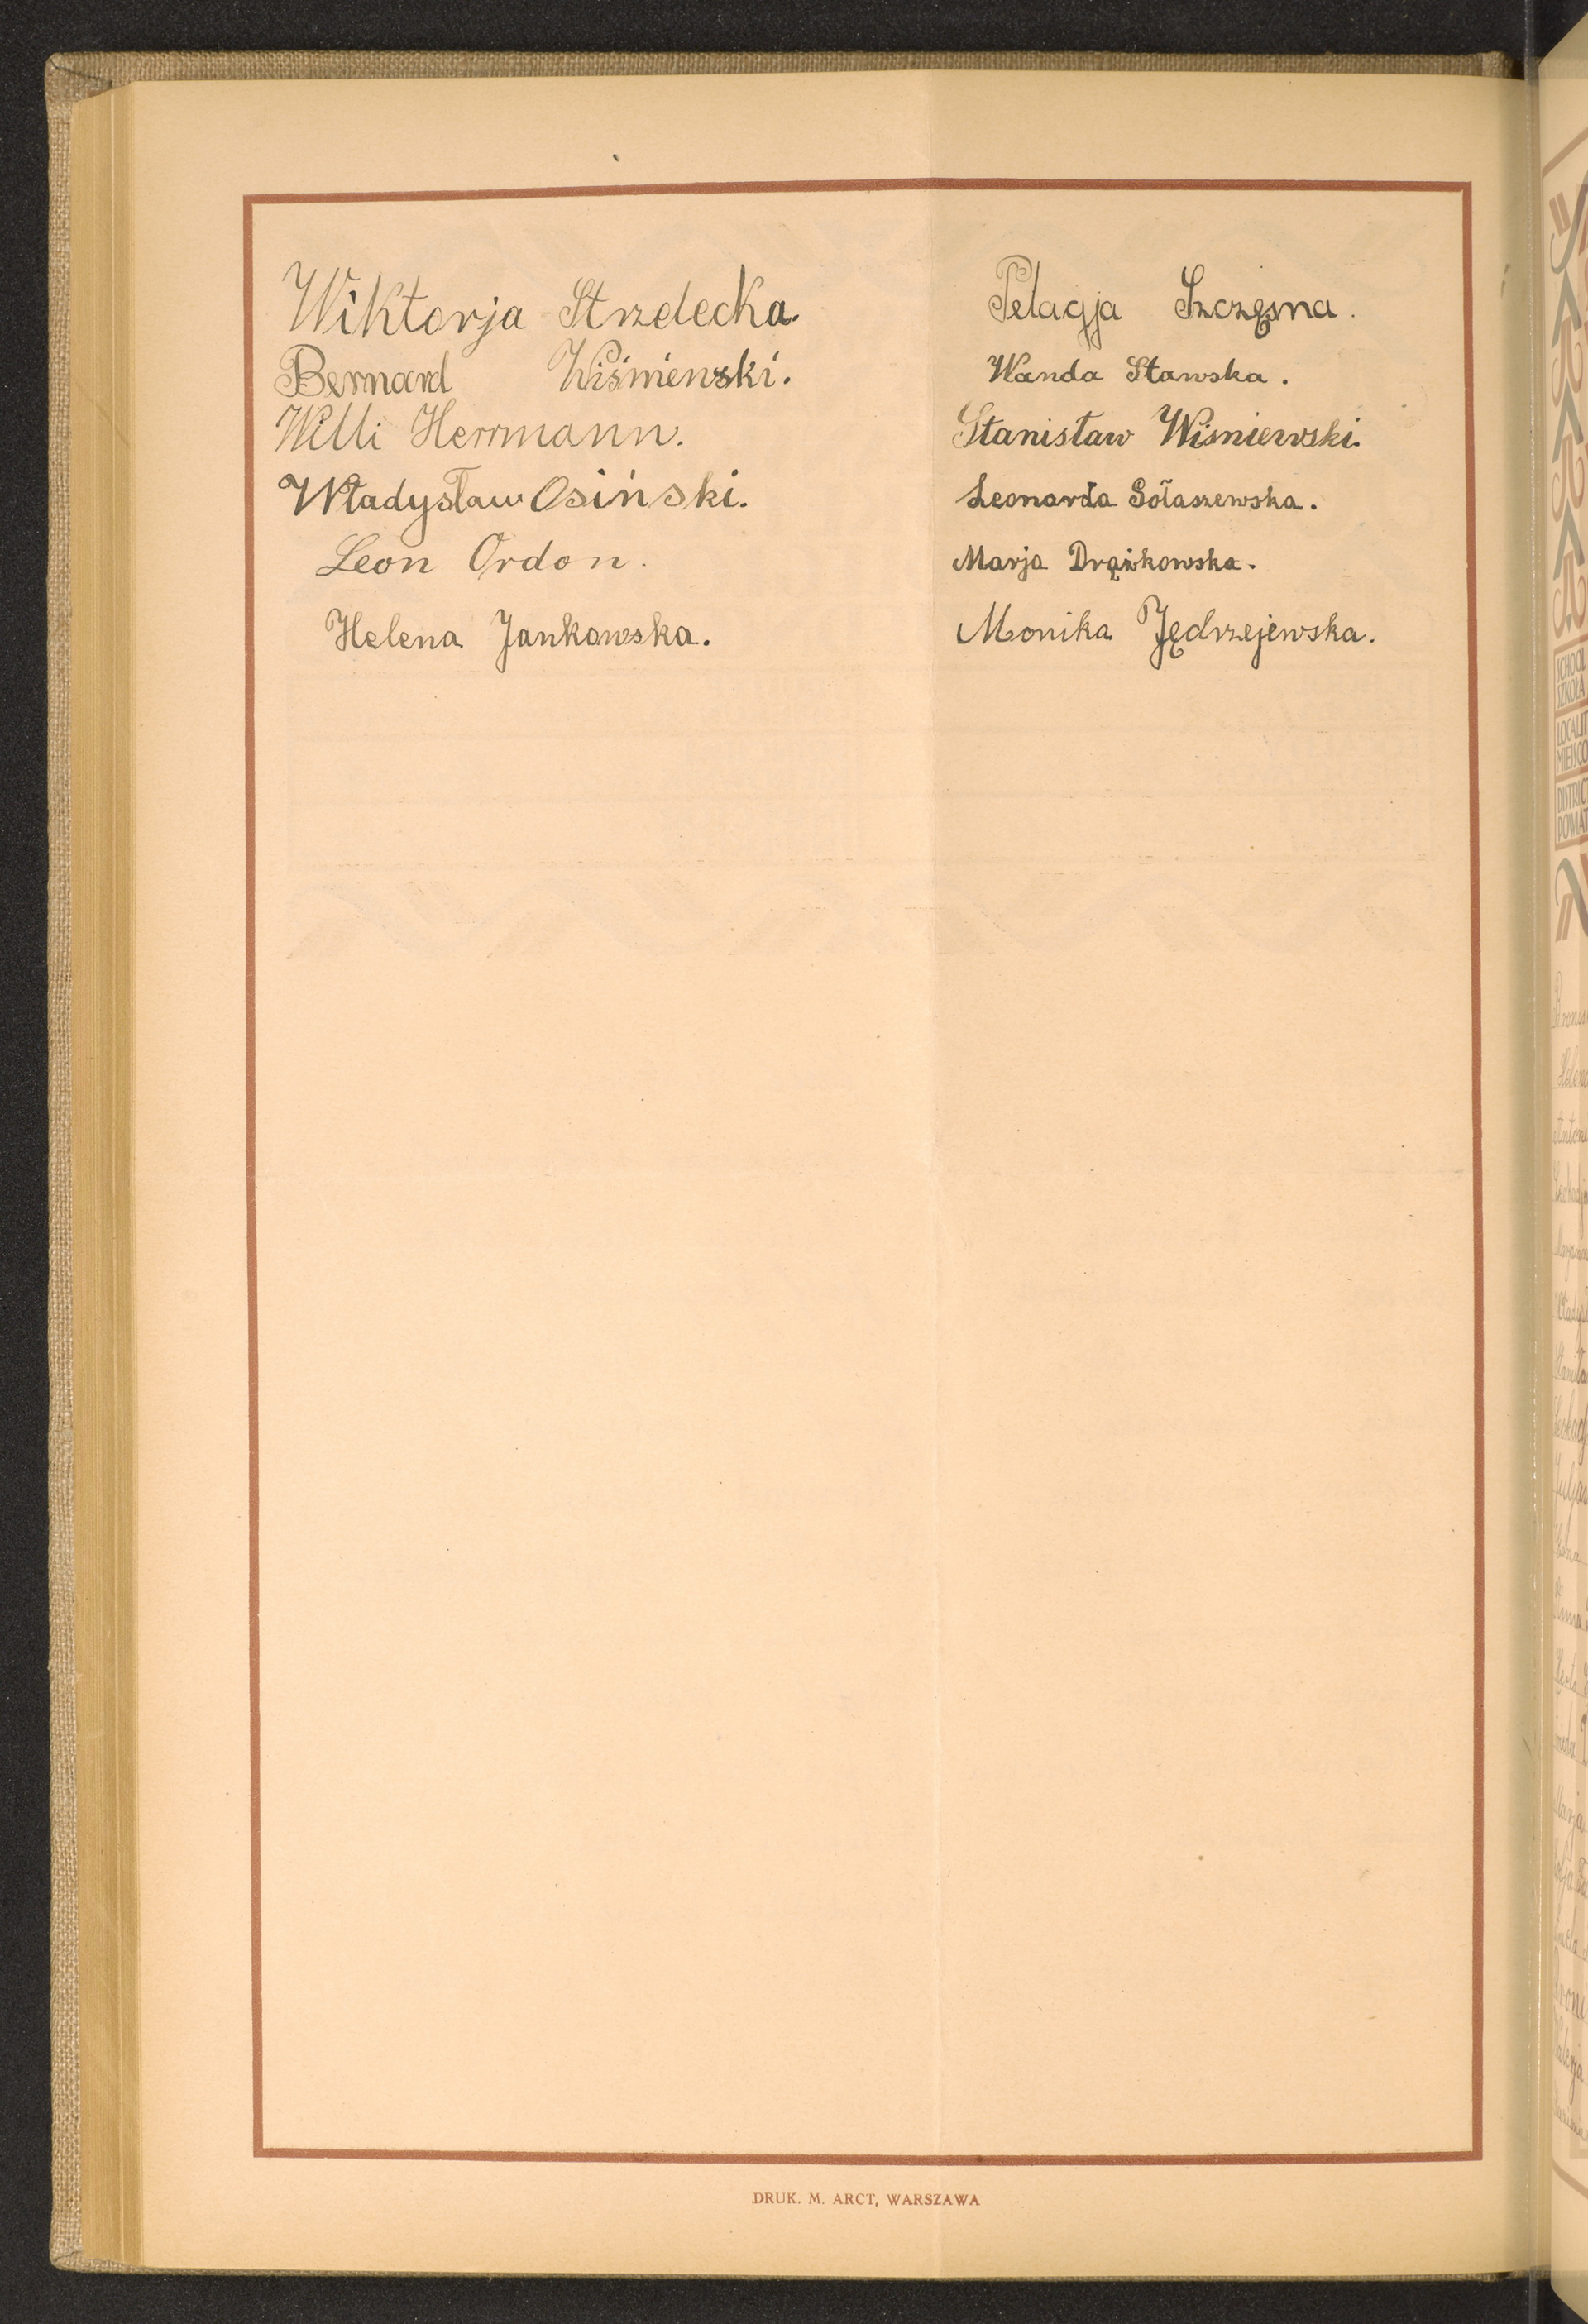 Wiktorja Strzelecka.
Bernard Wiśniewski.
Willi Herrmann.
Władysław Osiński.
Leon Ordon.
Helena Jankowska.
Pelagja Szczęsna.
Wanda Stawska.
Stanisław Wisniewski.
Leonarda Gołaszewska.
Marja Drążkowska.
Monika Jędrzejewska.
DRUK. M. ARCT, WARSZAWA
SCHOOL
SZKOŁA